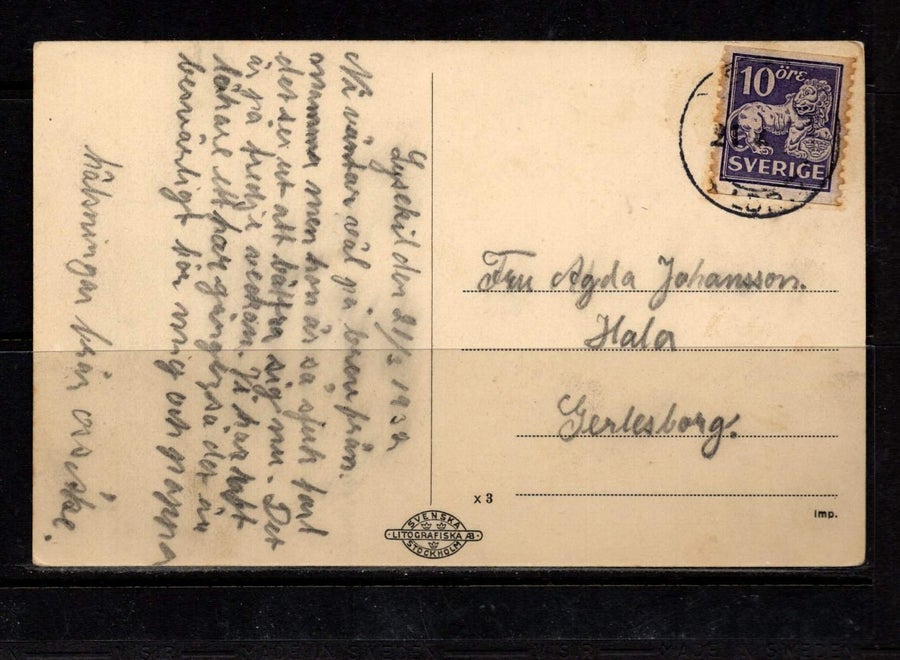 Lysekil den 21/3 1932
Ni väntar väl på brev från
mamma men hon är så sjuk fast
det ser ut att bättra sig nu. Det
är på tredje veckan. Ja har
gånger så det är
besvärligt för mig och pappa
hälsningar från
10 öre
SVERIGE
Fru Agda Johansson.
Hala
Gerlesborg.
x 3
imp.
SVENSKA
LITOGRAFISKA AB
STOCKHOLM